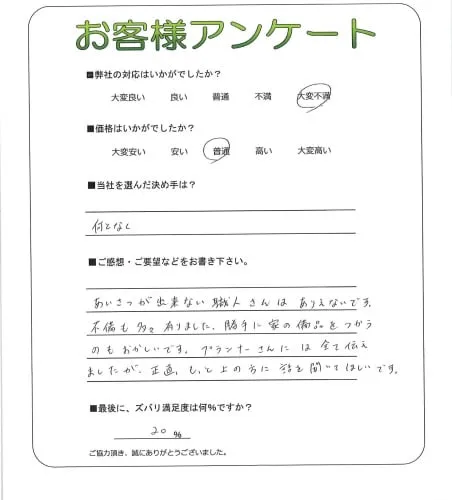 お客様アンケート
■弊社の対応はいかがでしたか?
大変良い 良い 普通 不満 大変不満
■価格はいかがでしたか?
大変安い 安い 普通 高い 大変高い
■当社を選んだ決め手は?
何となく
■ご感想・ご要望などをお書き下さい。
あいさつが出来ない職人さんはありえないです。
不備も多々有りました。勝手に家の備品をつかう
のもおかしいです。プランナーさんには全て伝え
ましたが、正直、もっと上の方に話を聞いてほしいです。
■最後に、ズバリ満足度は何%ですか?
20 %
ご協力頂き、誠にありがとうございました。